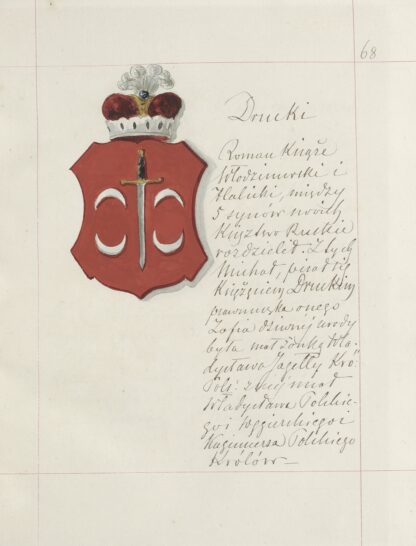 68
Drucki
Roman Książe
Włodzimirski i
Halicki, między
5 synów swoich
Księztwo Ruskie
rozdzielił. Z tych
Michał, pisał się
Księżęciem Druckim
prawnuczka onego
Zofia dziwnej urody
była małżonką Wła-
dysława Jagełły Kró:
Pols: z niej miał
Władysława Polskie-
go i Węgierskiego i
Kazimierza Polskiego
Królów